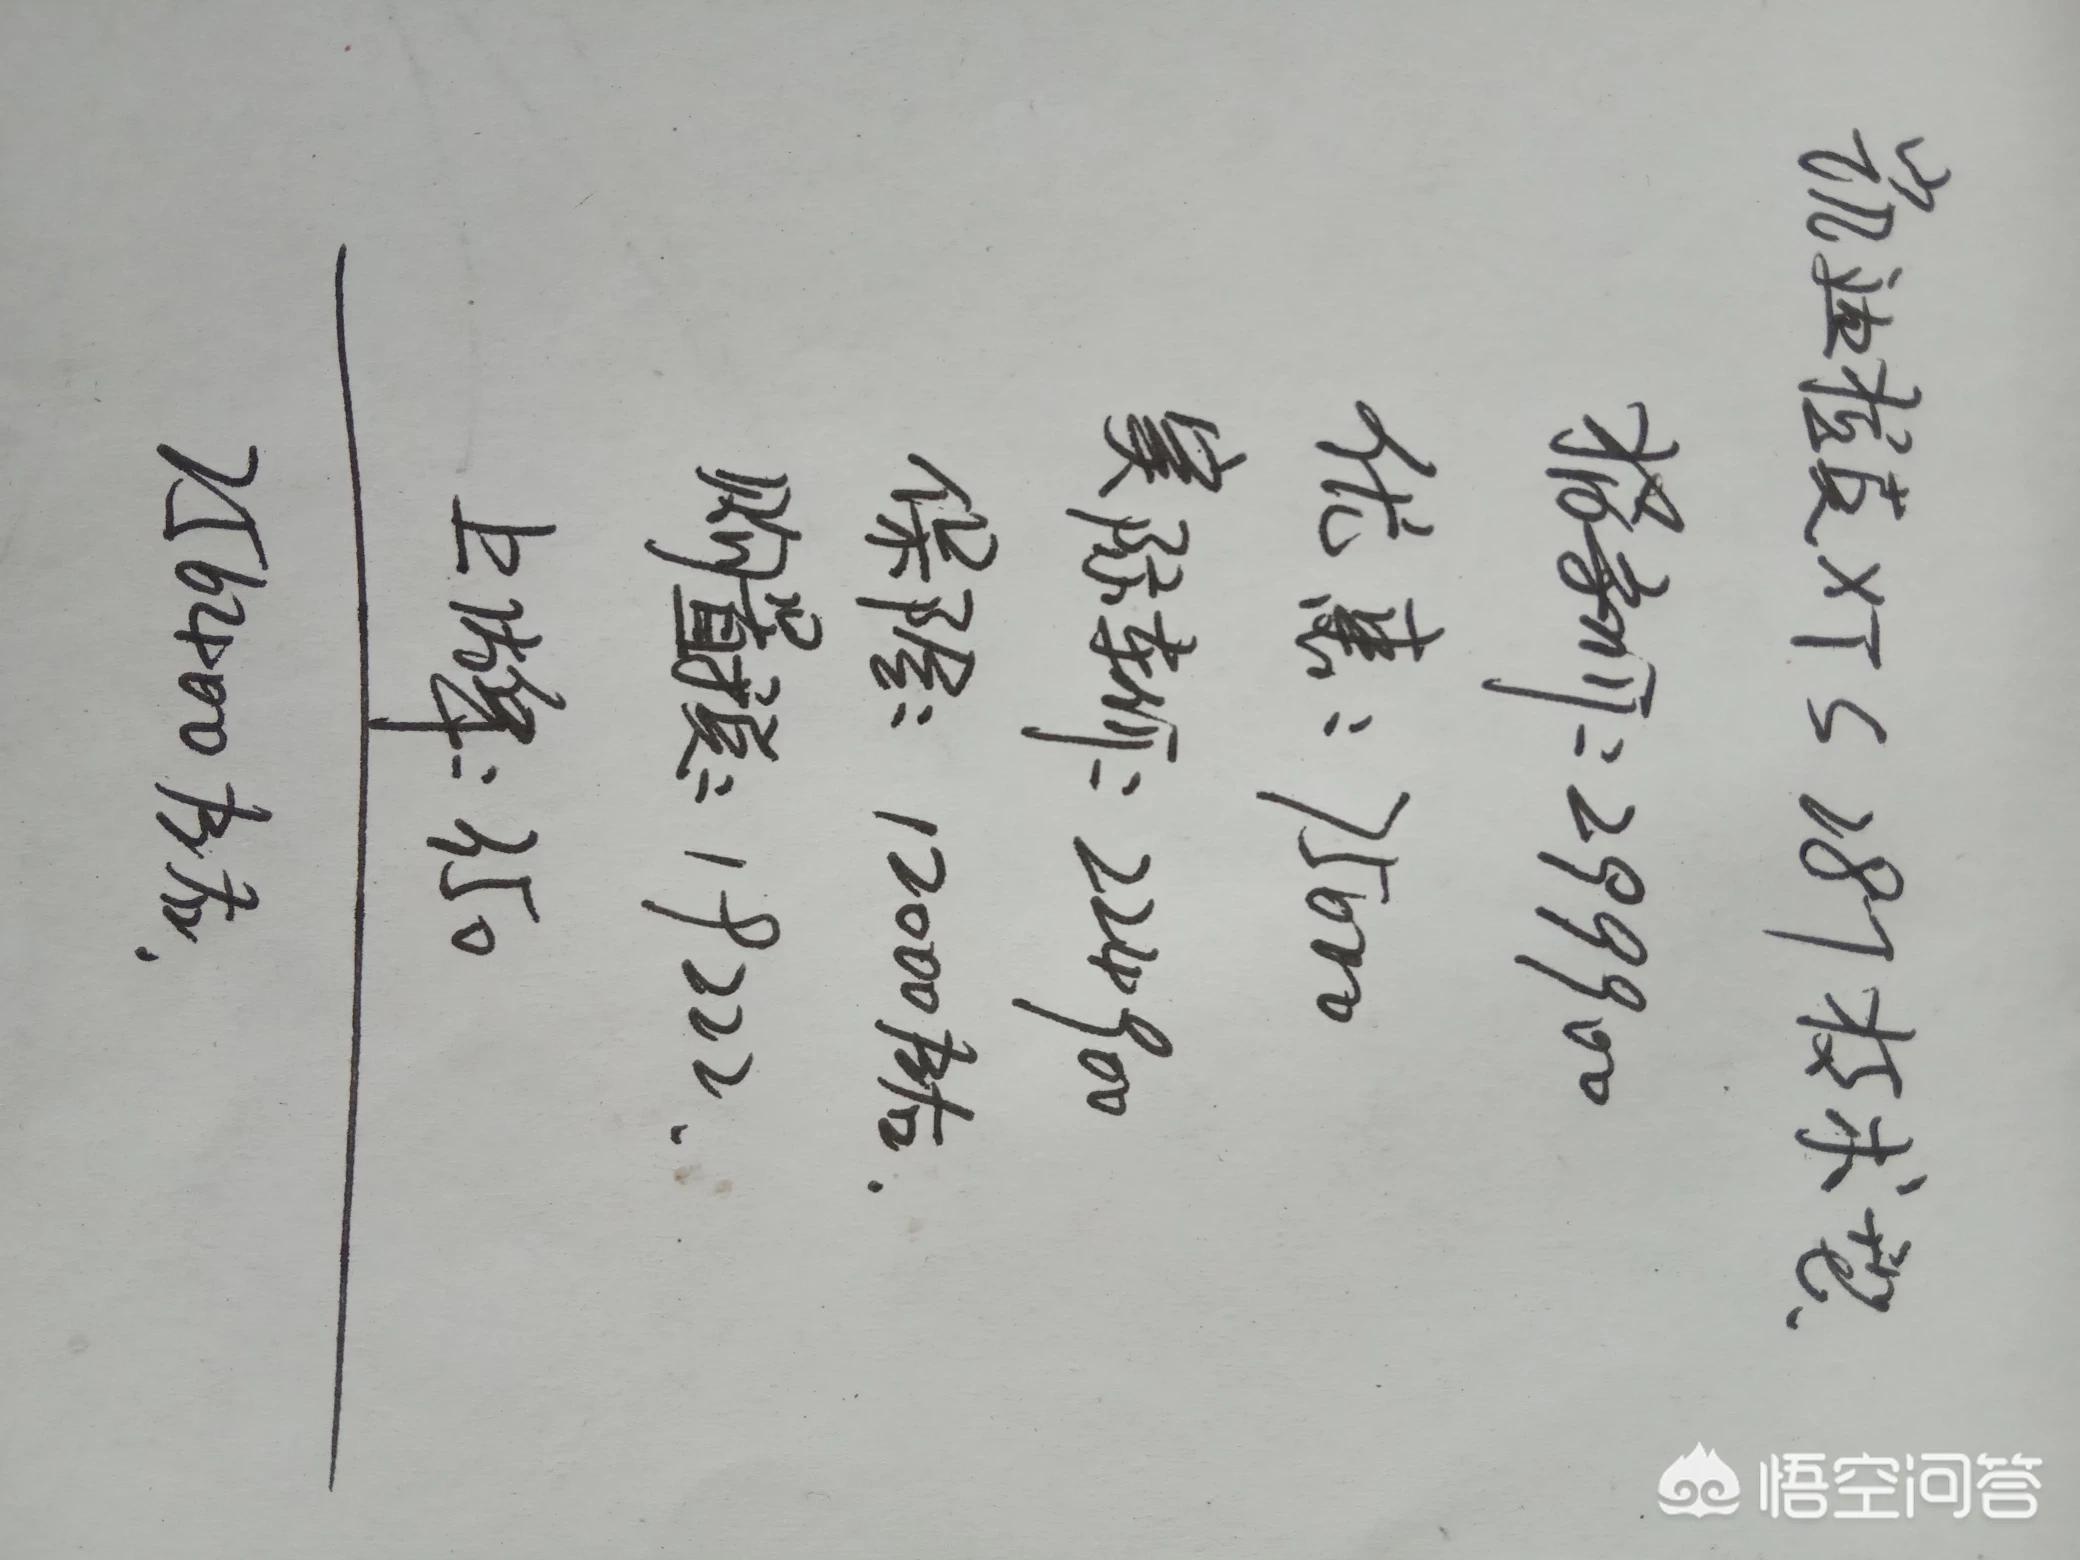 凯迪拉克XTS 28T技术型.
指导价:299900
优惠:75000
实际车价:224900
保险:12000左右.
购置税:19222.
上牌:250
256400左右.
悟空问答